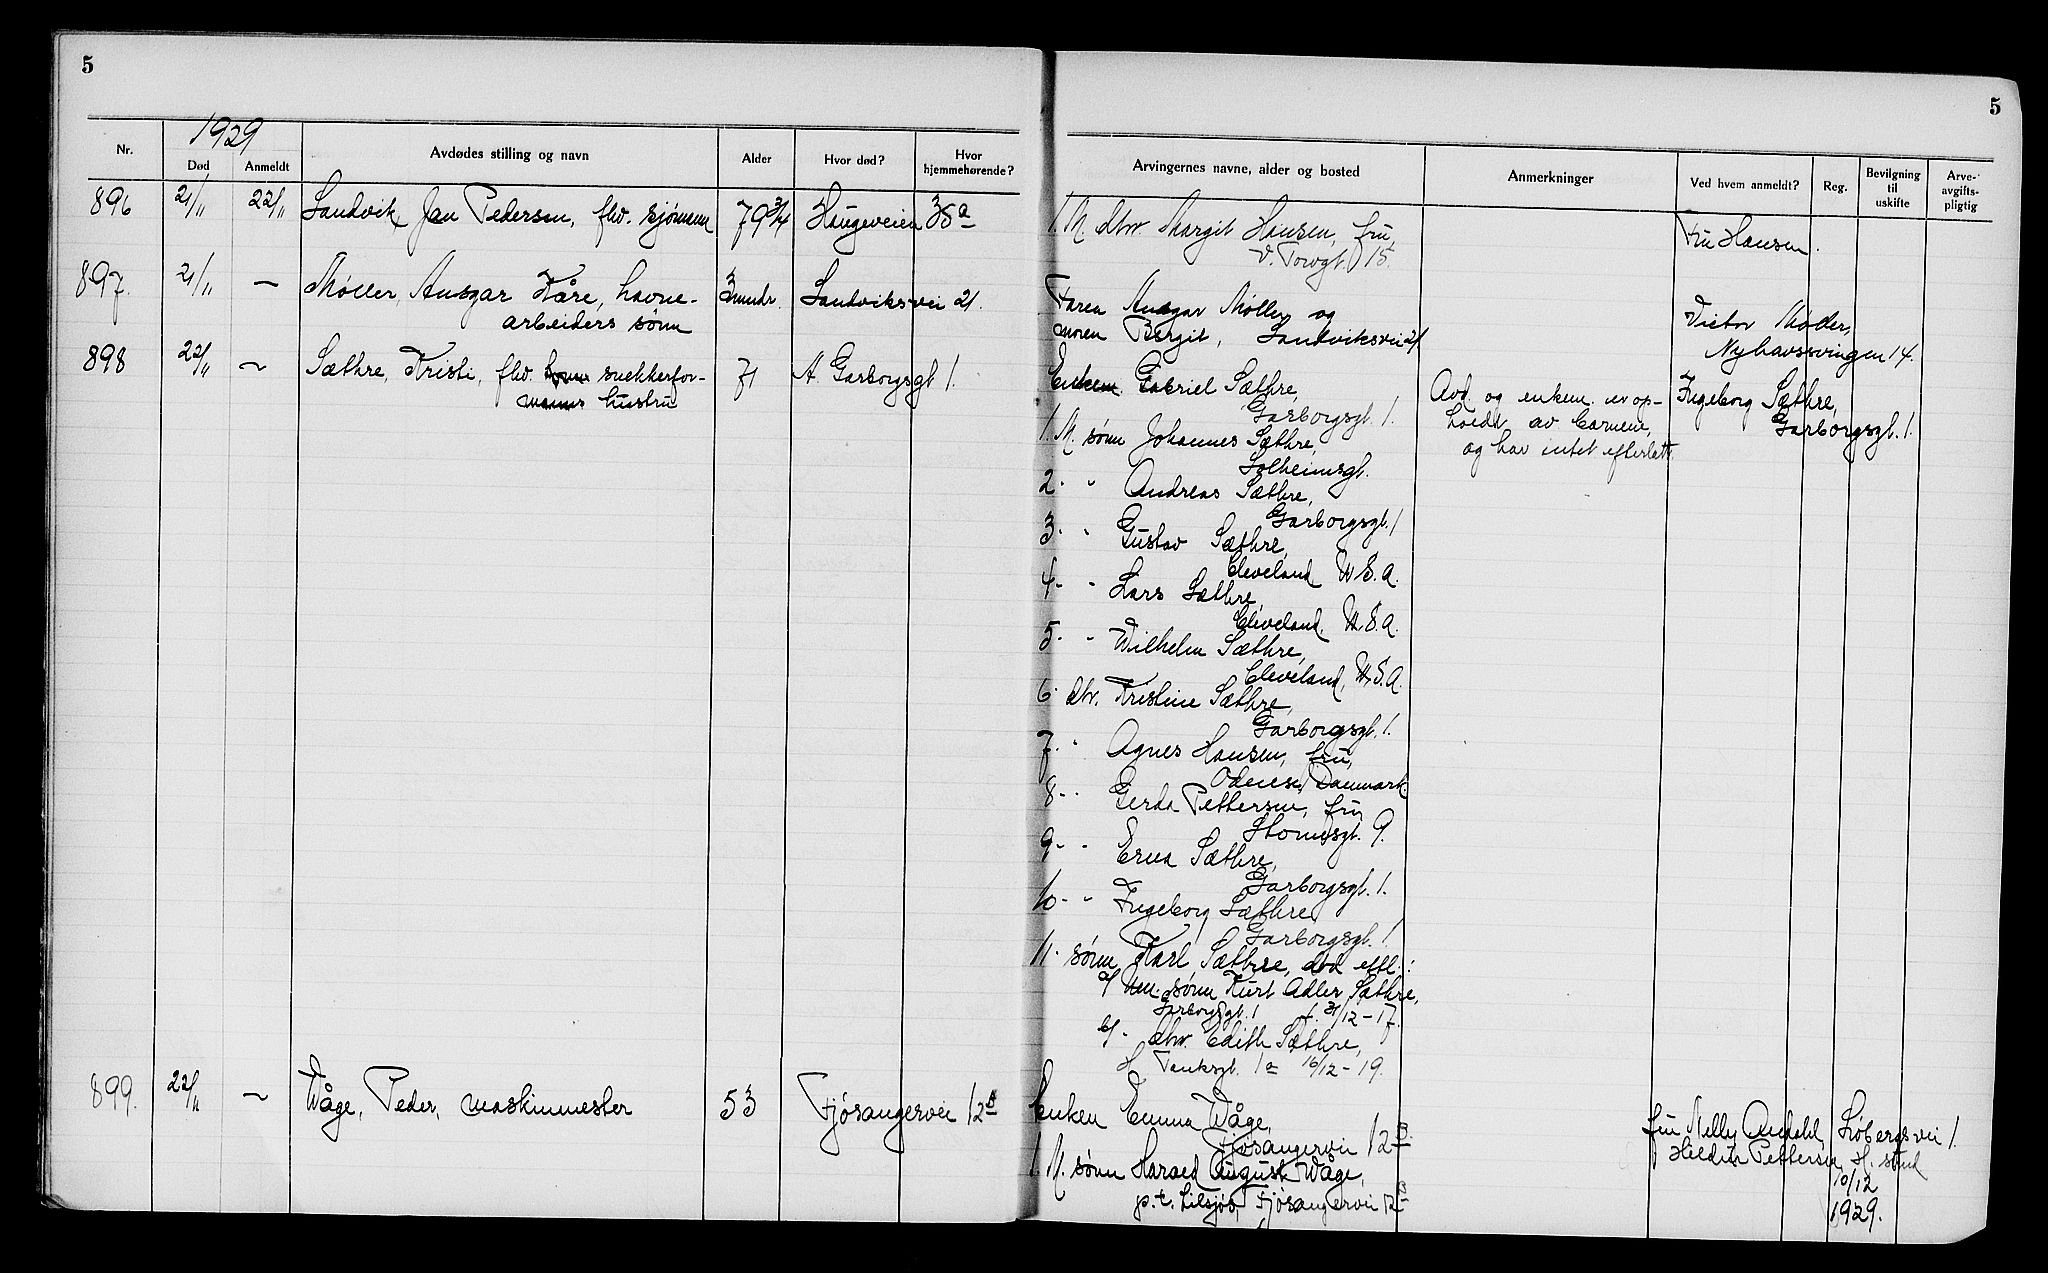 5
1929
Nr.
Død
Anmeldt
Avdødes stilling og navn
Alder
Hvor død?
Hvor hjemmehørende?
896 21/11 22/11 Sandvik, Jan Pedersen, fhv. sjømann 79 3/4 Haugeveien 38a
897. 21/11 — Møller, Ansgar Kåre, havne-
arbeiders sønn
3 mndr. Sandviksvei 21.
898 22/11 — Sæthre, Kristi, fhv. snekkerfor-
manns hustru
71 A. Garborgsgt 1.
899. 22/11 — Wåge, Peder, maskinmester 53 Fjøsangervei 12B
5
Arvingernes navne, alder og bosted
Anmerkninger
Ved hvem anmeldt?
Reg.
Bevilgning til uskifte
Arve-avgifts-pligtig
1. M. dtr. Margit Hansen, fru,
V. Torvgt. 15.
Fru Hansen.
Faren Ansgar Møller og
moren Bergit, Sandviksvei 21
Victor Møller,
Nyhavnsvingen 14.
Enkem. Gabriel Sæthre,
Garborgsgt. 1.
1. M. sønn Johannes Sæthre,
Solheimsgt.
2. " Andreas Sæthre,
Garborgsgt. 1
3. " Gustav Sæthre,
Cleveland U.S.A.
4. " Lars Sæthre,
Cleveland. U.S.A.
5. " Wilhelm Sæthre,
Cleveland, U.S.A.
6. dtr. Kristine Sæthre,
Garborgsgt. 1.
7. " Agnes Hansen, fru,
Odense, Danmark.
8. " Gerda Pettersen, fru,
9.
9. " Erna Sæthre,
Garborgsgt. 1.
10. " Ingeborg Sæthre
Garborgsgt. 1
11. sønn Karl Sæthre, død, eftl.:
a/ um. sønn Kurt Adler Sæthre,
Garborgsgt. 1 f. 31/12-17.
b/ - dtr. Edith Sæthre,
1a 16/12-19.
Avd. og enkem. er op-
holdt av barnene,
og har intet efterlatt.
Ingeborg Sæthre,
Garborgsgt. 1.
Enken Emma Wåge,
Fjøsangervei 12B.
1 M. sønn Harald August Wåge,
p.t. tilsjøs, Fjøsangervei 12B
fru Nelly Løbergsvei 1.
Pettersen
10/12
1929.